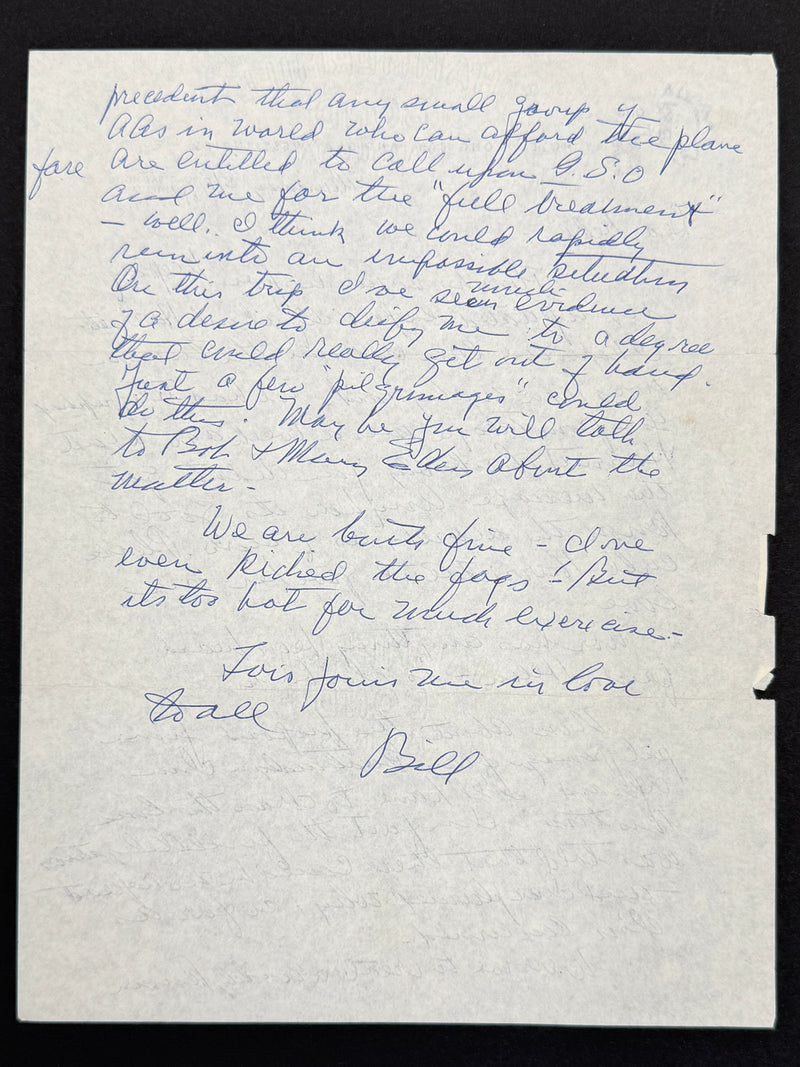 precedent that any small group of
AAs in world who can afford the plane
fare are entitled to call upon G.S.O
and me for the "full treatment"
— well. I think we could rapidly
run into an impossible situation
On this trip I've seen much evidence
of a desire to deify me to a degree
that could really get out of hand.
Just a few "pilgrimages" could
do this. May be you will talk
to Bob & Mary Ellen about the
matter —
We are both fine — I've
even kicked the fags! But
its too hot for much exercise —
Lois joins me in love
to all
Bill